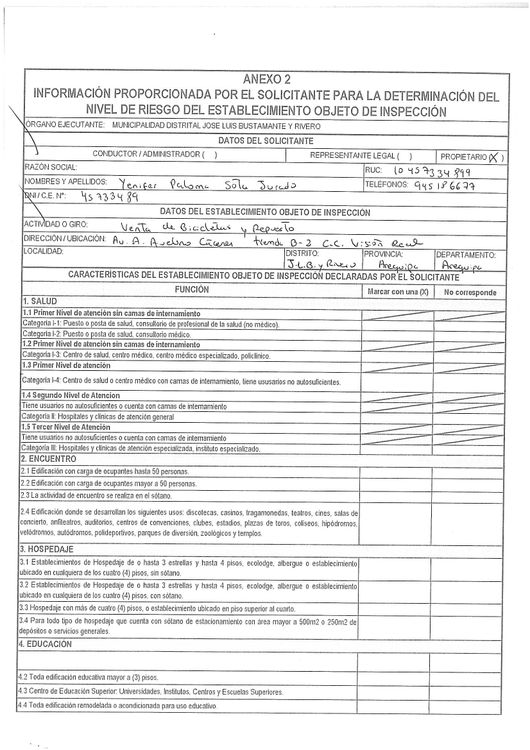 ANEXO 2
INFORMACIÓN PROPORCIONADA POR EL SOLICITANTE PARA LA DETERMINACIÓN DEL
NIVEL DE RIESGO DEL ESTABLECIMIENTO OBJETO DE INSPECCIÓN
ÓRGANO EJECUTANTE: MUNICIPALIDAD DISTRITAL JOSE LUIS BUSTAMANTE Y RIVERO
DATOS DEL SOLICITANTE
CONDUCTOR / ADMINISTRADOR ( ) REPRESENTANTE LEGAL ( ) PROPIETARIO (X)
RAZÓN SOCIAL: RUC: 10457334899
NOMBRES Y APELLIDOS: Yenifer Paloma Sota Jurado TELEFONOS: 945186677
DNI / C.E. N°: 45733489
DATOS DEL ESTABLECIMIENTO OBJETO DE INSPECCIÓN
ACTIVIDAD O GIRO: Venta de Bicicletas y Repuesto
DIRECCIÓN / UBICACIÓN: Av. A. Avelino Cáceres tienda B-3 C.C. Visión Real
LOCALIDAD: DISTRITO: J.L.B. y Rivero PROVINCIA: Arequipa DEPARTAMENTO: Arequipa
CARACTERÍSTICAS DEL ESTABLECIMIENTO OBJETO DE INSPECCIÓN DECLARADAS POR EL SOLICITANTE
FUNCIÓN Marcar con una (X) No corresponde
1. SALUD
1.1 Primer Nivel de atención sin camas de internamiento
Categoría I-1: Puesto o posta de salud, consultorio de profesional de la salud (no médico).
Categoría I-2: Puesto o posta de salud, consultorio médico.
1.2 Primer Nivel de atención sin camas de internamiento
Categoría I-3: Centro de salud, centro médico, centro médico especializado, policlínico.
1.3 Primer Nivel de atención
Categoría I-4: Centro de salud o centro médico con camas de internamiento, tiene ususarios no autosuficientes.
1.4 Segundo Nivel de Atencion
Tiene usuarios no autosuficientes o cuenta con camas de internamiento
Categoría II: Hospitales y clínicas de atención general
1.5 Tercer Nivel de Atención
Tiene usuarios no autosuficientes o cuenta con camas de internamiento
Categoría III: Hospitales y clínicas de atención especializada, instituto especializado.
2. ENCUENTRO
2.1 Edificación con carga de ocupantes hasta 50 personas.
2.2 Edificación con carga de ocupantes mayor a 50 personas.
2.3 La actividad de encuentro se realiza en el sótano.
2.4 Edificación donde se desarrollan los siguientes usos: discotecas, casinos, tragamonedas, teatros, cines, salas de
concierto, anfiteatros, auditorios, centros de convenciones, clubes, estadios, plazas de toros, coliseos, hipódromos,
velódromos, autódromos, polideportivos, parques de diversión, zoológicos y templos.
3. HOSPEDAJE
3.1 Establecimientos de Hospedaje de o hasta 3 estrellas y hasta 4 pisos, ecolodge, albergue o establecimiento
ubicado en cualquiera de los cuatro (4) pisos, sin sótano.
3.2 Establecimientos de Hospedaje de o hasta 3 estrellas y hasta 4 pisos, ecolodge, albergue o establecimiento
ubicado en cualquiera de los cuatro (4) pisos, con sótano.
3.3 Hospedaje con más de cuatro (4) pisos, o establecimiento ubicado en piso superior al cuarto.
3.4 Para todo tipo de hospedaje que cuenta con sótano de estacionamiento con área mayor a 500m2 o 250m2 de
depósitos o servicios generales.
4. EDUCACIÓN
4.2 Toda edificación educativa mayor a (3) pisos.
4.3 Centro de Educación Superior: Universidades, Institutos, Centros y Escuelas Superiores.
4.4 Toda edificación remodelada o acondicionada para uso educativo